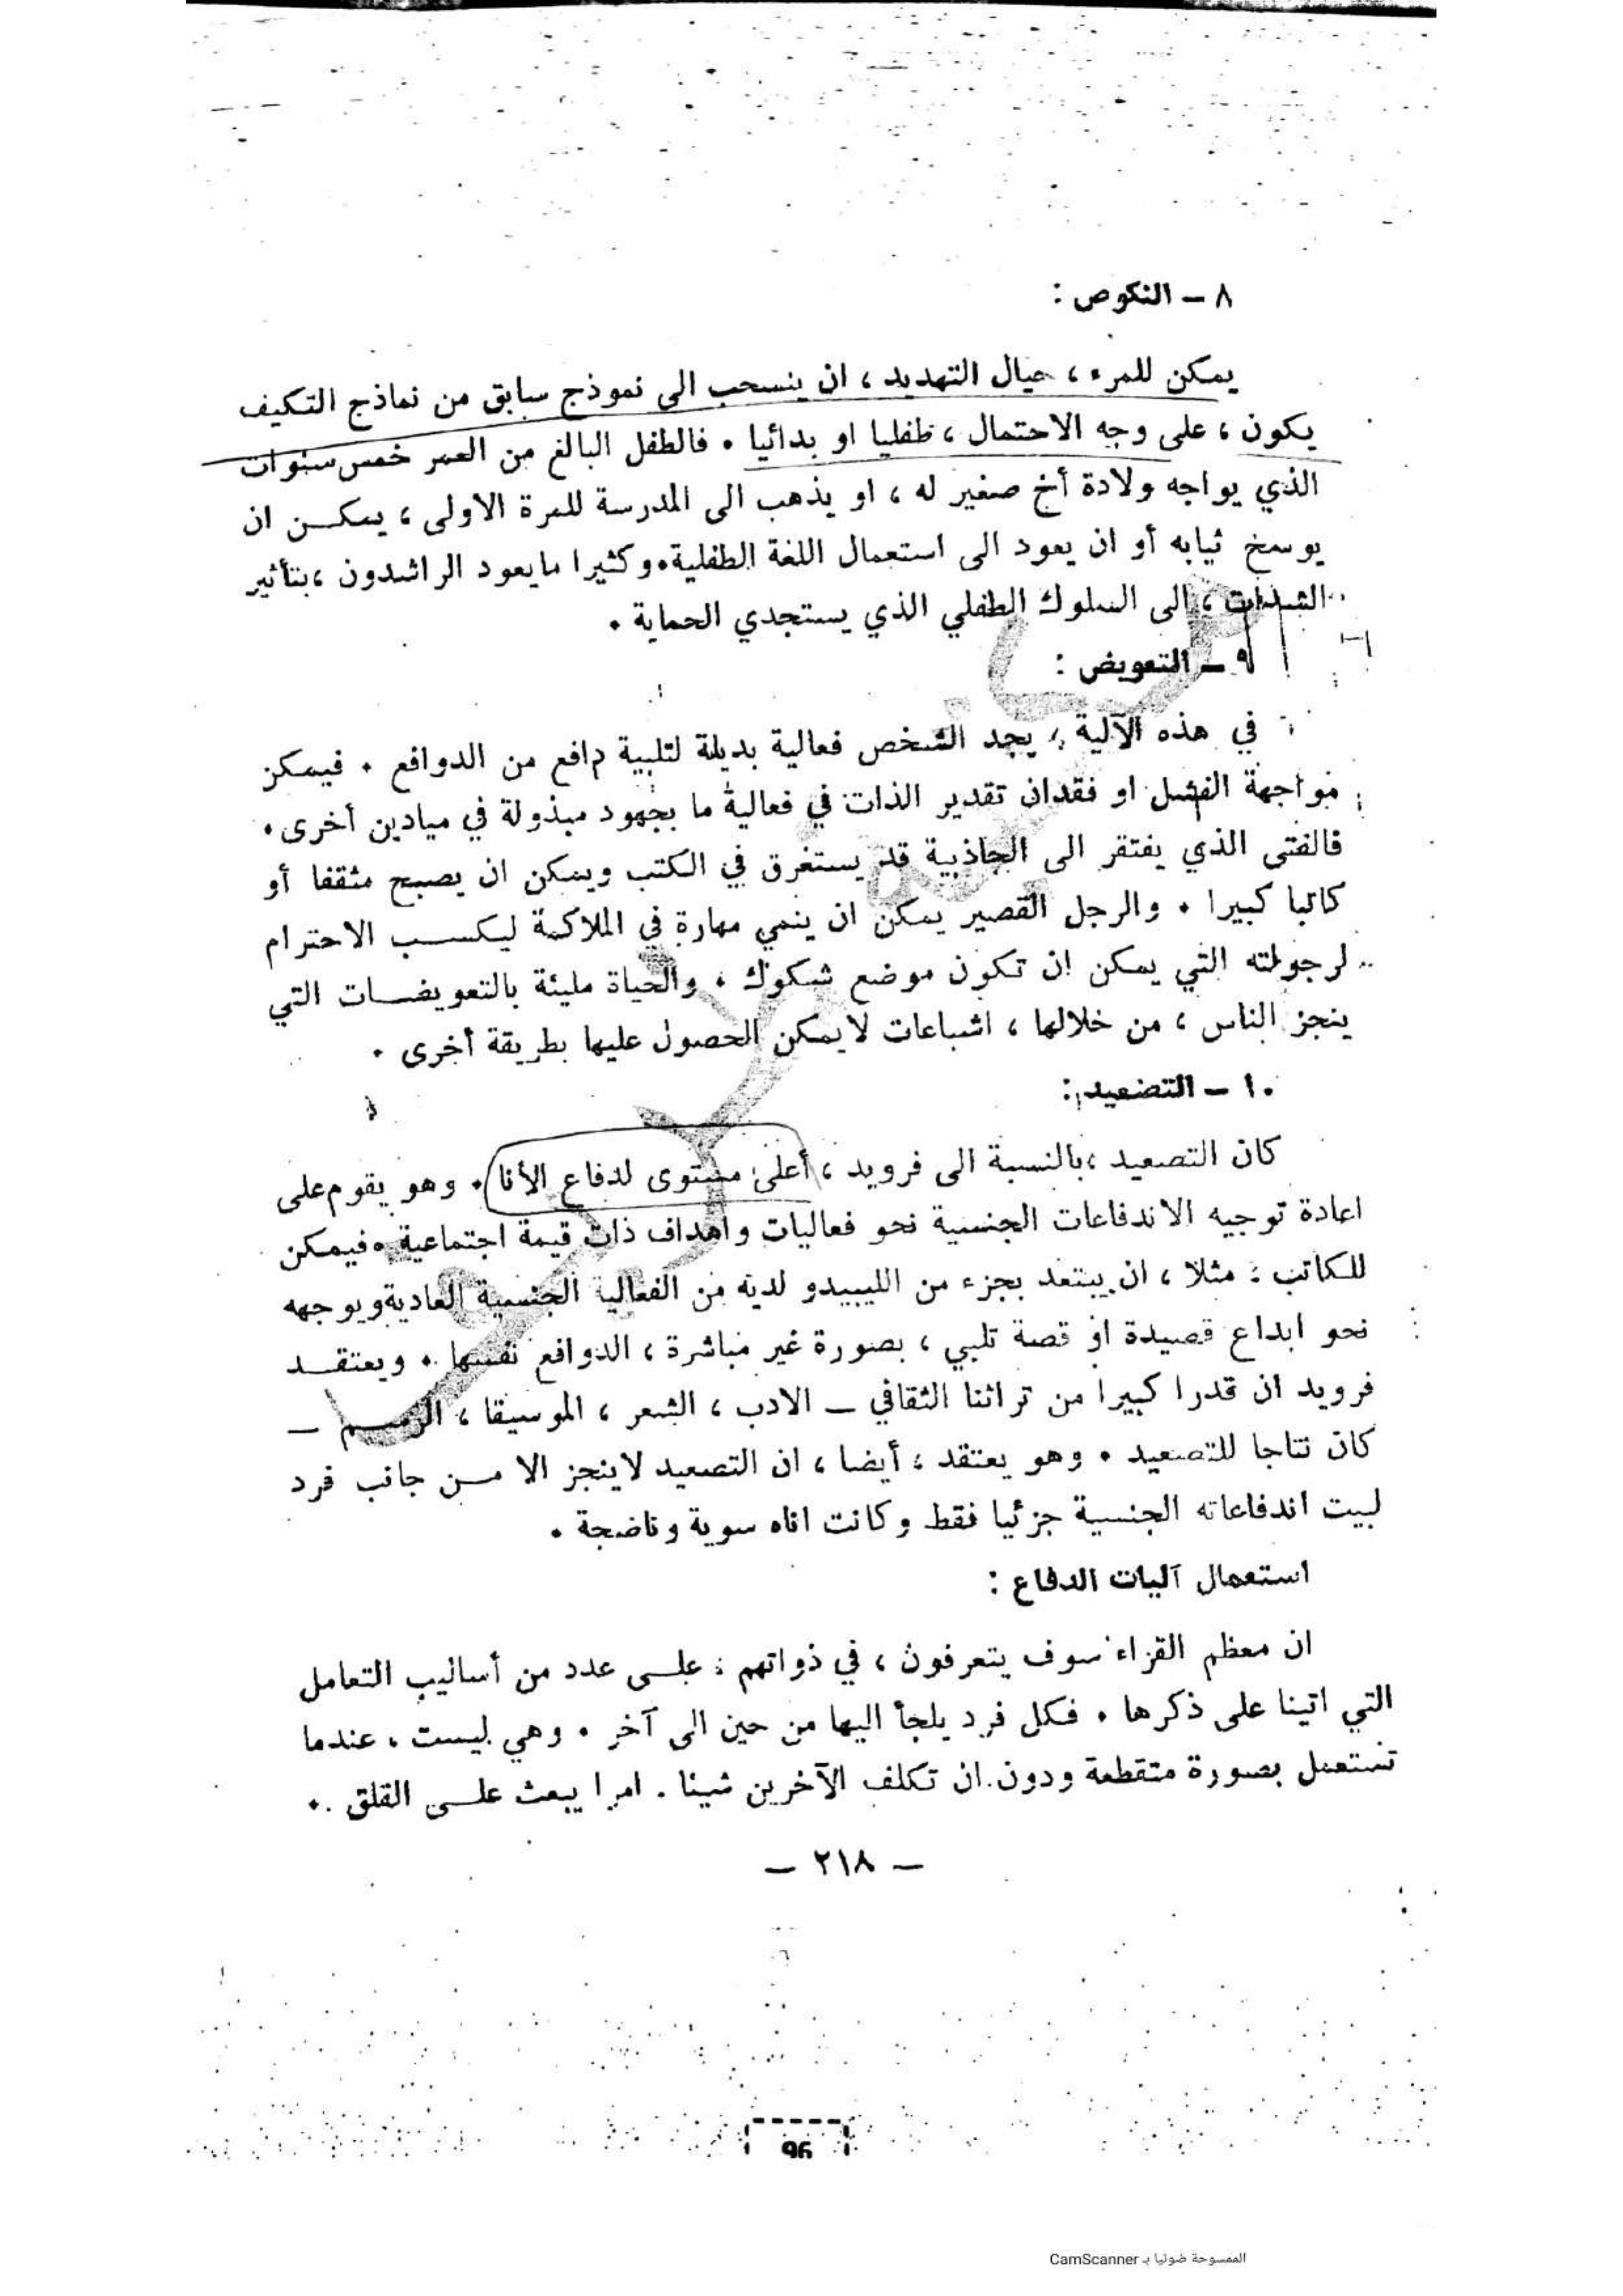 ٨ – النكوص :
يمكن للمرء ، حيال التهديد ، ان ينسحب الى نموذج سابق من نماذج التكيف
يكون ، على وجه الاحتمال ، طفليا او بدائيا . فالطفل البالغ من العمر خمس سنوات
الذي يواجه ولادة أخ صغير له ، او يذهب الى المدرسة للمرة الاولى ، يمكــن ان
يوسخ ثيابه أو ان يعود الى استعمال اللغة الطفلية . وكثيرا ما يعود الراشدون ، بتأثير
الشدات ، الى السلوك الطفلي الذي يستجدي الحماية .
٩ – التعويض :
في هذه الآلية ، يجد الشخص فعالية بديلة لتلبية دافع من الدوافع . فيمكن
مواجهة الفشل او فقدان تقدير الذات في فعالية ما بجهود مبذولة في ميادين أخرى .
فالفتى الذي يفتقر الى الجاذبية قد يستغرق في الكتب ويمكن ان يصبح مثقفا أو
كاتبا كبيرا . والرجل القصير يمكن ان ينمي مهارة في الملاكمة ليكســب الاحترام
لرجولته التي يمكن ان تكون موضع شكوك ، والحياة مليئة بالتعويضــات التي
ينجز الناس ، من خلالها ، اشباعات لا يمكن الحصول عليها بطريقة أخرى .
١٠ – التصعيد :
كان التصعيد ، بالنسبة الى فرويد ، أعلى مستوى لدفاع الأنا . وهو يقوم على
اعادة توجيه الاندفاعات الجنسية نحو فعاليات واهداف ذات قيمة اجتماعية . فيمكن
للكاتب ، مثلا ، ان يبتعد بجزء من الليبيدو لديه من الفعالية الجنسية العادية ويوجهه
نحو ابداع قصيدة او قصة تلبي ، بصورة غير مباشرة ، الدوافع نفسها . ويعتقــد
فرويد ان قدرا كبيرا من تراثنا الثقافي – الادب ، الشعر ، الموسيقا ، الرســم –
كان نتاجا للتصعيد . وهو يعتقد ، أيضا ، ان التصعيد لا ينجز الا مــن جانب فرد
لبيت اندفاعاته الجنسية جزئيا فقط وكانت اناه سوية وناضجة .
استعمال آليات الدفاع :
ان معظم القراء سوف يتعرفون ، في ذواتهم ، علــى عدد من أساليب التعامل
التي اتينا على ذكرها . فكل فرد يلجأ اليها من حين الى آخر . وهي ليست ، عندما
تستعمل بصورة متقطعة ودون ان تكلف الآخرين شيئا . امرا يبعث علــى القلق .
– ٢١٨ –
96
الممسوحة ضوئيا بـ CamScanner